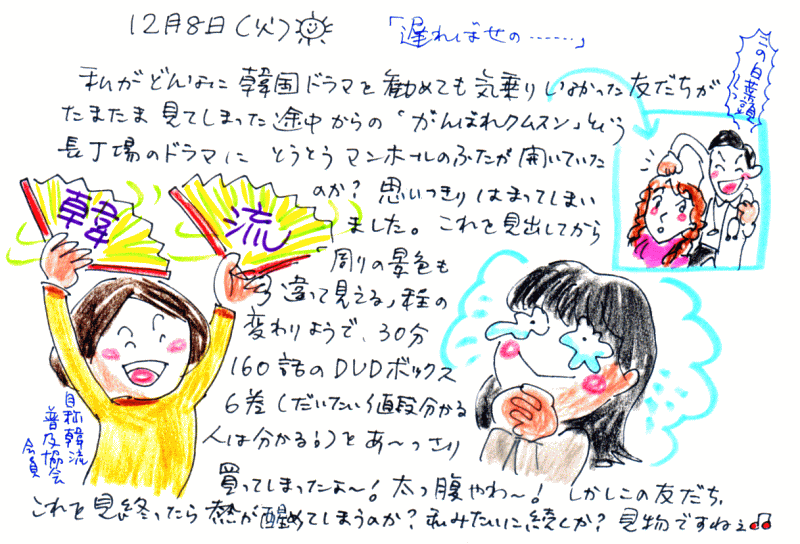 12月8日(火)
「遅ればせの……」
この白菜頭
私がどんなに韓国ドラマを勧めても気乗りしなかった友だちが
たまたま見てしまった途中からの「がんばれクムスン」という
長丁場のドラマに とうとうマンホールのふたが開いていた
のか? 思いっきりはまってしまい
ました。これを見出してから
「周りの景色も
違って見える」程の
変わりようで、30分
160話のDVDボックス
6巻(だいたい値段分かる
人は分かる!)をあ〜っさり
買ってしまったよ〜! 太っ腹やわ〜! しかしこの友だち、
これを見終ったら熱が醒めてしまうのか? 私みたいに続くか? 見物ですねぇ♫
韓
流
自称韓流
普及協会
会員